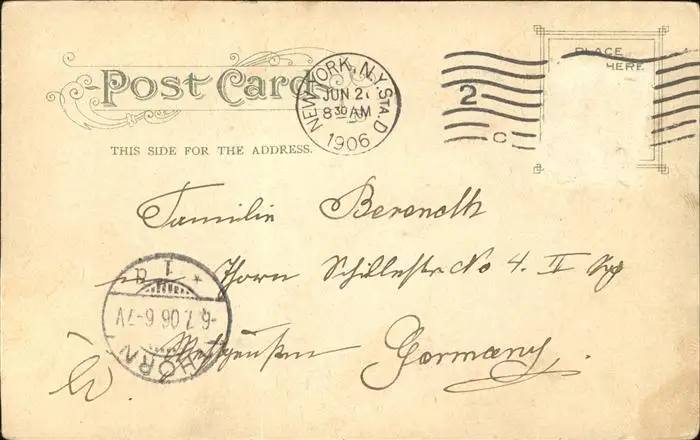 Post Card
THIS SIDE FOR THE ADDRESS.
NEW YORK, N.Y. STA. D
JUN 2
8 30 AM
1906
2
C
PLACE
HERE
Familie
Thorn Schillerstr No 4. II
Westpreußen Germany.
THORN
1
-6.7.06 6-7V